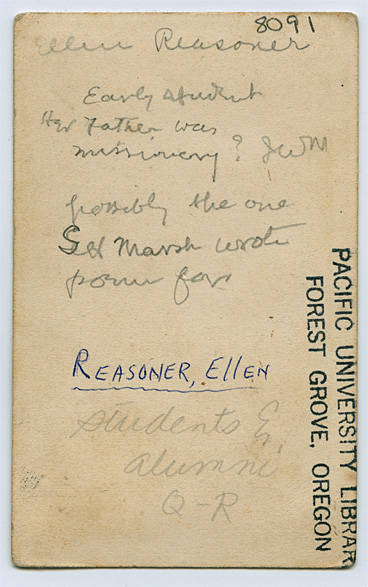 8091
Ellen Reasoner
Early student
Her Father was
missionary? JWM
possibly the one
SH Marsh wrote
poem for
REASONER, EllEN
Students &
alumni
Q-R
PACIFIC UNIVERSITY LIBRAR
FOREST GROVE, OREGON